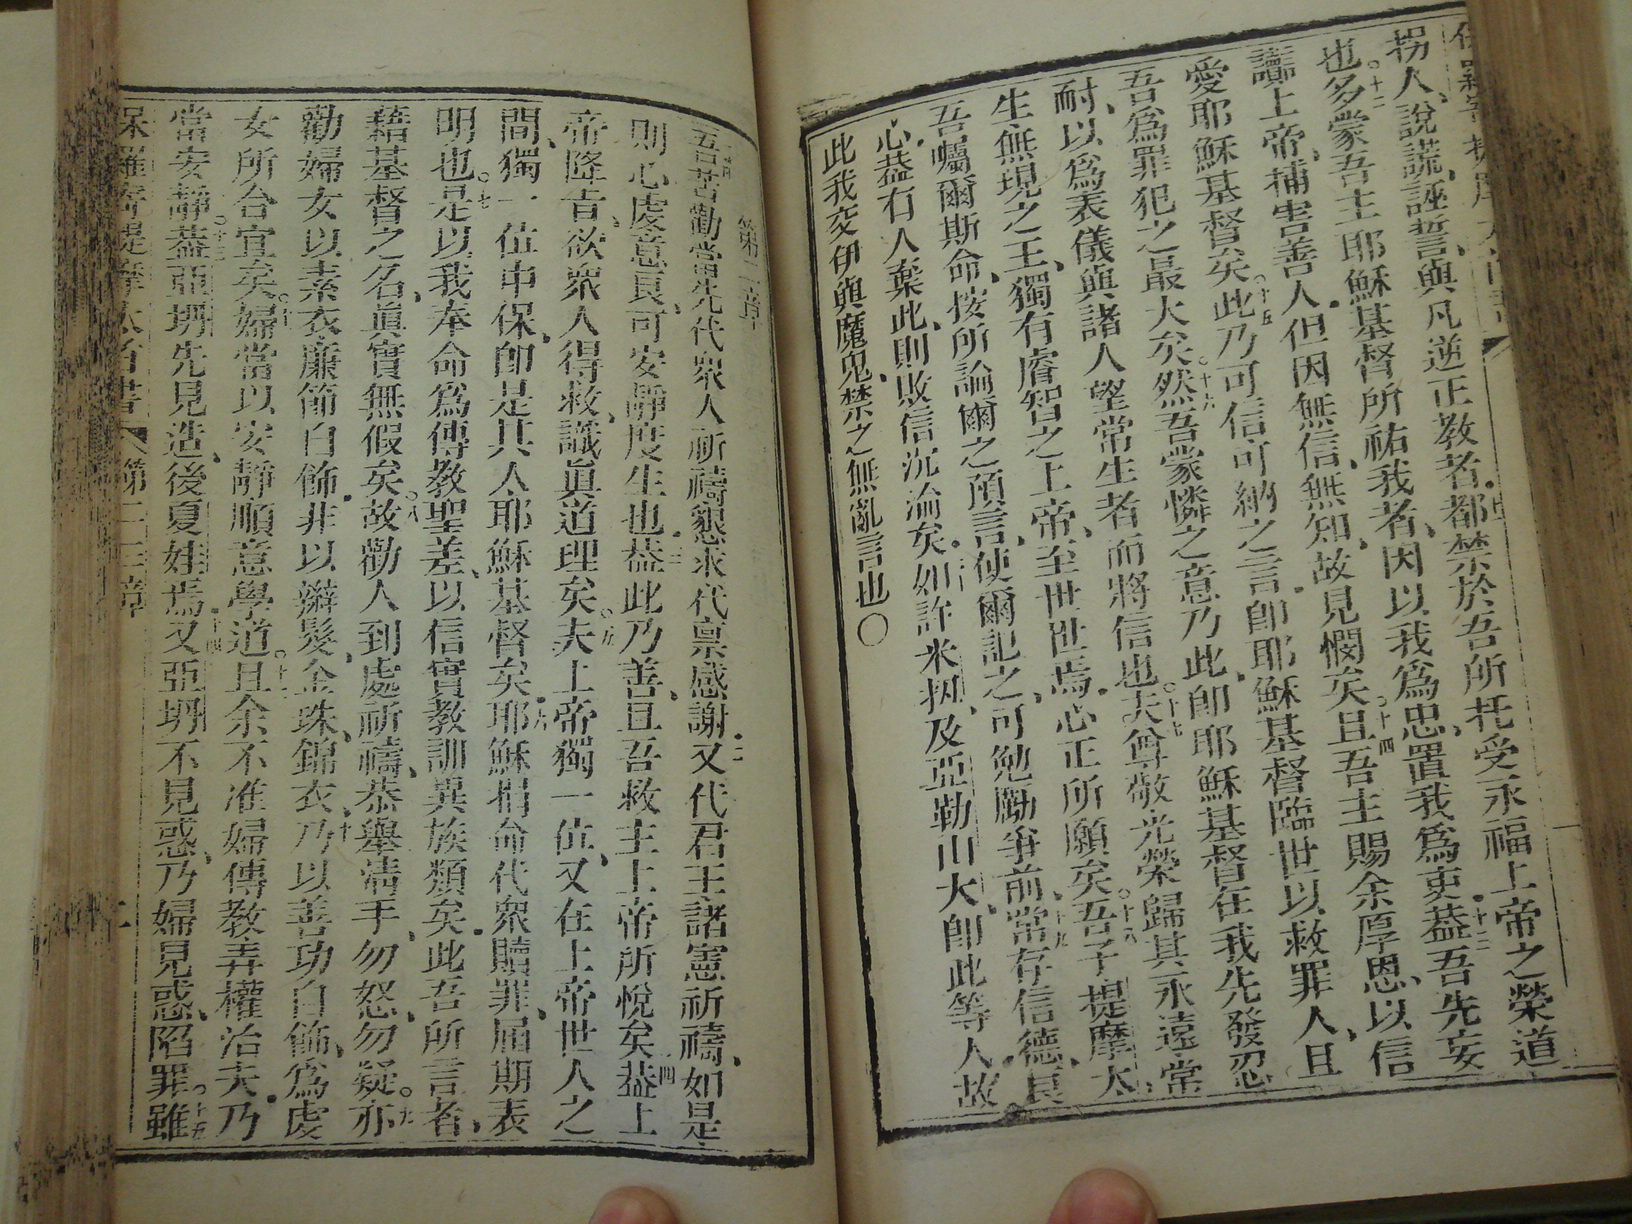 拐人、說謊、誣誓、與凡逆正教者、都禁於吾所托受永福上帝之榮道
也。十二多蒙吾主耶穌基督所祐我者、因以我爲忠、置我爲吏。十三葢吾先妄
讟上帝、捕害善人、但因無信、無知、故見憫矣。十四且吾主賜余厚恩、以信
愛耶穌基督矣。十五此乃可信可納之言、卽耶穌基督臨世以救罪人、且
吾爲罪犯之最大矣。十六然吾蒙憐之意乃此、卽耶穌基督在我先發忍
耐、以爲表儀與諸人望常生者而將信也。十七夫尊敬光榮歸其永遠常
生、無現之王、獨有睿智之上帝、至世世焉。心正所願矣。十八吾子提摩太、
吾囑爾斯命、按所論爾之預言、使爾記之、可勉勵爭前、十九常存信德、良
心、葢有人棄此、則敗信沉淪矣。二十如許米拟、及亞勒山大、卽此等人、故
此我交伊與魔鬼、禁之無亂言也〇
第二章
吾甚勸當先代衆人祈禱懇求代禀感謝。二又代君王諸憲祈禱、如是
則心處意良、可安靜度生也。三葢此乃善、且吾救主上帝所悅矣。四葢上
帝降旨、欲衆人得救、識眞道理矣。五夫上帝獨一位、又在上帝世人之
間、獨一位中保、卽是其人耶穌基督矣。六耶穌捐命代衆贖罪、屆期表
明也。七是以我奉命爲傳教聖差、以信實教訓異族類矣。此吾所言者、
藉基督之名、眞實無假矣。八故勸人到處祈禱、恭舉淸手、勿怒、勿疑。九亦
勸婦女以素衣廉節自飾、非以辮髮、金珠、錦衣、十乃以善功自飾、爲虔
女所合宜矣。十一婦當以安靜順意學道。十二且余不准婦傳教弄權治夫、乃
當安靜。十三葢亞坍先見造、後夏娃焉。十四又亞坍不見惑、乃婦見惑、陷罪。十五雖
保羅寄提摩太首書 第二三章 二